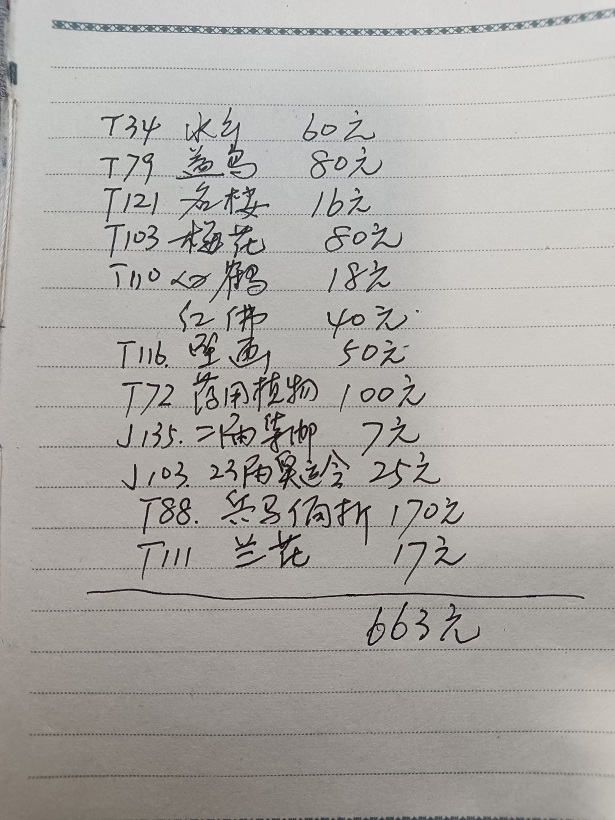 T34 水乡 60元
T79 益鸟 80元
T121 名楼 16元
T103 梅花 80元
T110 白鹤 18元
红佛 40元
T116. 壁画 50元
T72 药用植物 100元
J135. 二届集邮 7元
J103. 23届奥运会 25元
T88. 兵马俑折 170元
T111 兰花 17元
663元